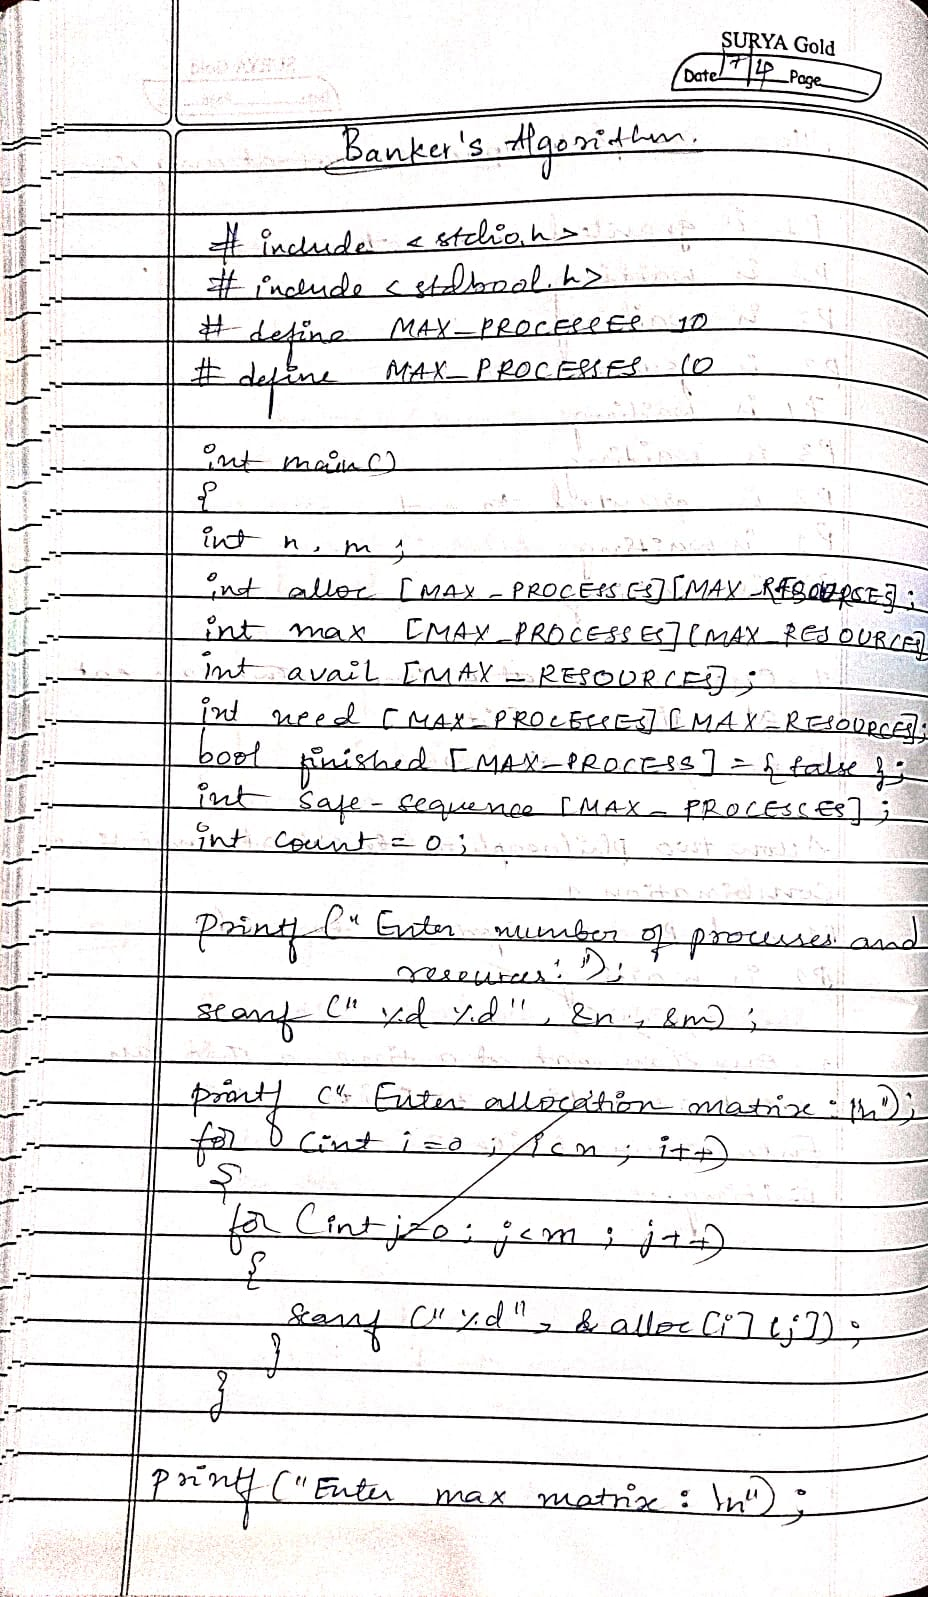 SURYA Gold
Date 7/4 Page
Banker's Algorithm.
# include <stdio.h>
# include <stdbool.h>
# define MAX_PROCESSES 10
# define MAX_PROCESSES 10
int main()
{
int n, m;
int alloc [MAX_PROCESSES][MAX_RESOURSES];
int max [MAX_PROCESSES][MAX_RESOURCES]
int avail [MAX_RESOURCES];
int need [MAX_PROCESSES][MAX_RESOURCES];
bool finished [MAX_PROCESS] = {false};
int safe_sequence [MAX_PROCESSES];
int count = 0;
printf ("Enter number of processes and
resources:");
scanf ("%d %d", &n, &m);
printf ("Enter allocation matrix : \n");
for (int i=0; i<n; i++)
{
for (int j=0; j<m; j++)
{
scanf ("%d", &alloc[i][j]);
}
}
printf ("Enter max matrix : \n");